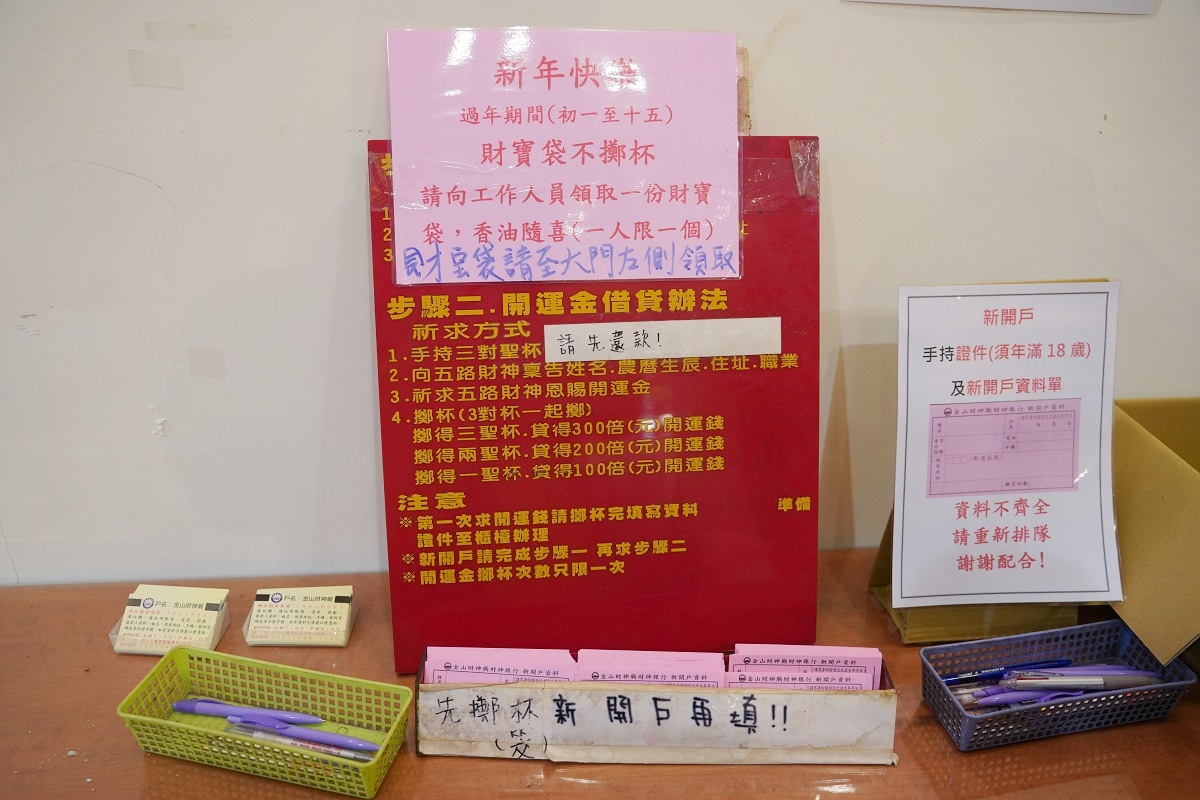 新年快樂
過年期間(初一至十五)
財寶袋不擲杯
請向工作人員領取一份財寶
袋，香油隨喜(一人限一個)
財宝袋請至大門左側領取
1
2
3
步驟二.開運金借貸辦法
祈求方式
請先還款!
1.手持三對聖杯
2.向五路財神稟告姓名.農曆生辰.住址.職業
3.祈求五路財神恩賜開運金
4.擲杯(3對杯一起擲)
擲得三聖杯.貸得300倍(元)開運錢
擲得兩聖杯.貸得200倍(元)開運錢
擲得一聖杯.貸得100倍(元)開運錢
注意
※第一次求開運錢請擲杯完填寫資料 準備
證件至櫃檯辦理
※新開戶請完成步驟一 再求步驟二
※開運金擲杯次數只限一次
新開戶
手持證件(須年滿18歲)
及新開戶資料單
金山財神廟財神銀行 新開戶資料
資料不齊全
請重新排隊
謝謝配合!
戶名：金山財神廟
戶名：金山財神廟
金山財神廟財神銀行 新開戶資料
金山財神廟財神銀行 新開戶資料
金山財神廟財神銀行 新開戶資料
金山財神廟財神銀行 新開戶資料
先擲杯新開戶再填!!
(筊)